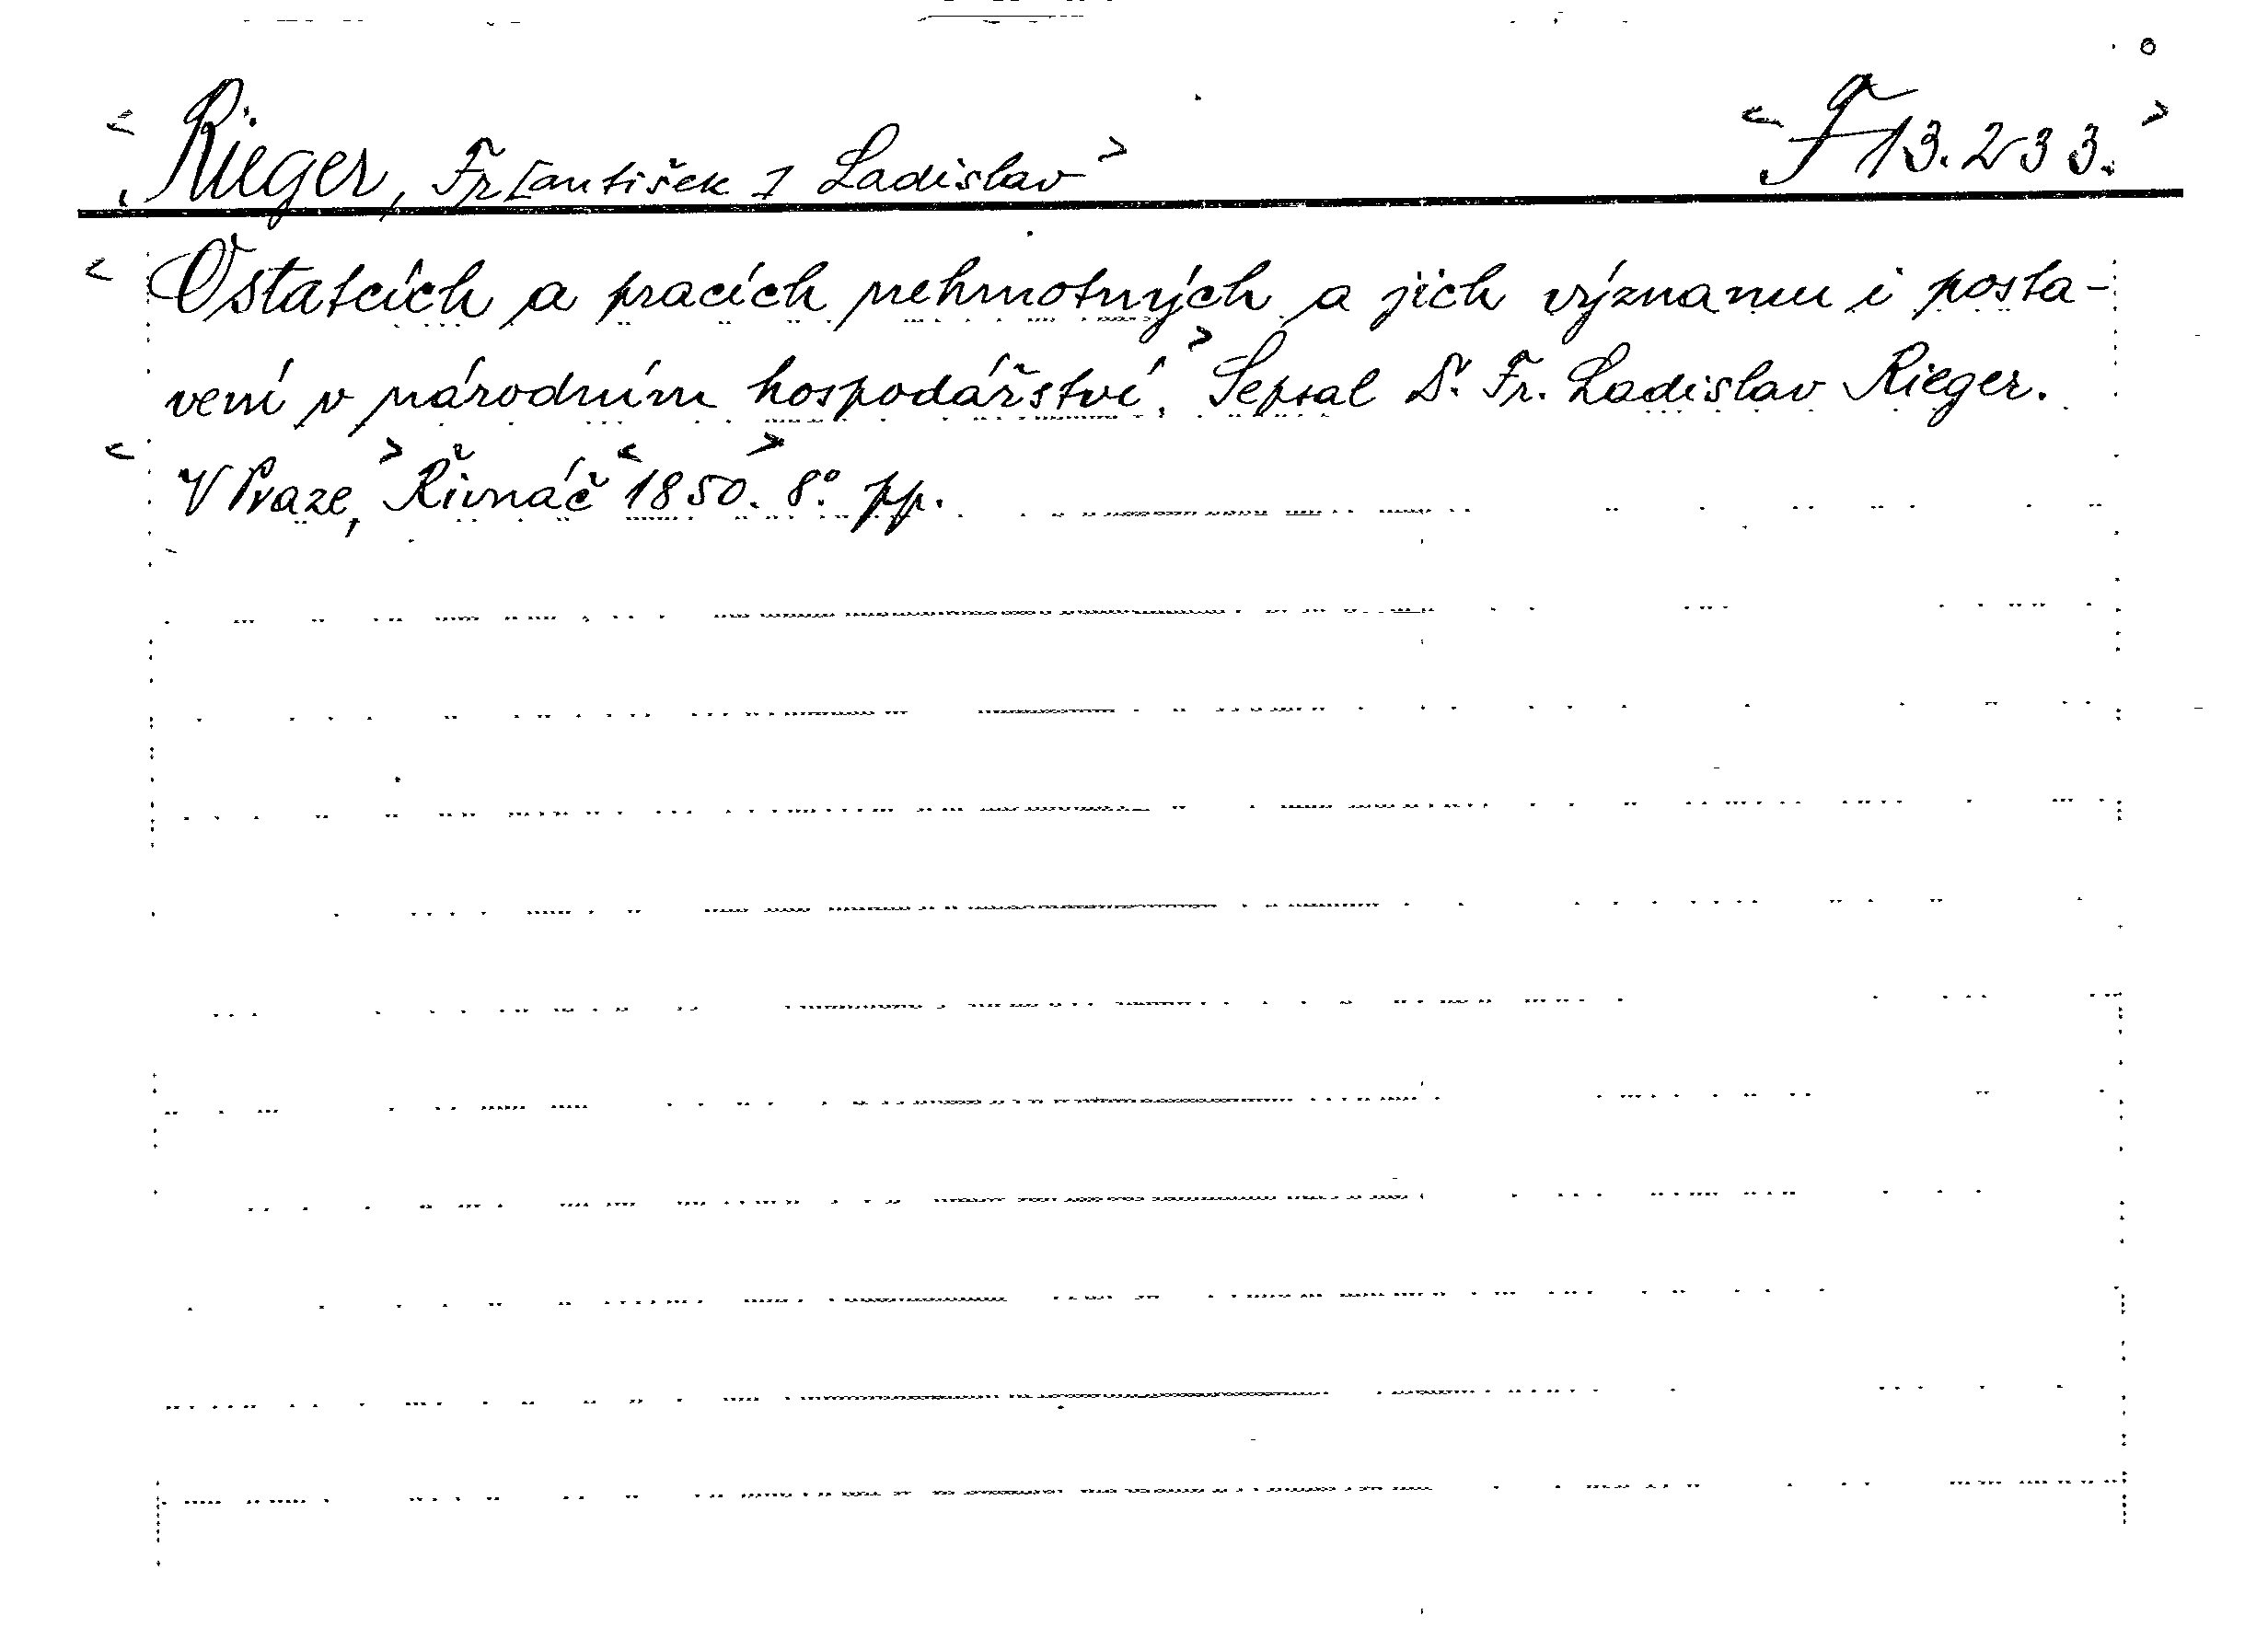 <Rieger, Fr[antišek] Ladislav> <F 13.233.>
<O statcích a pracích nehmotných a jich významu i posta-
vení v národním hospodářství.> Sepsal Dr. Fr. Ladislav Rieger.
<V Praze,> Řivnáč <1850.> 8° pp.